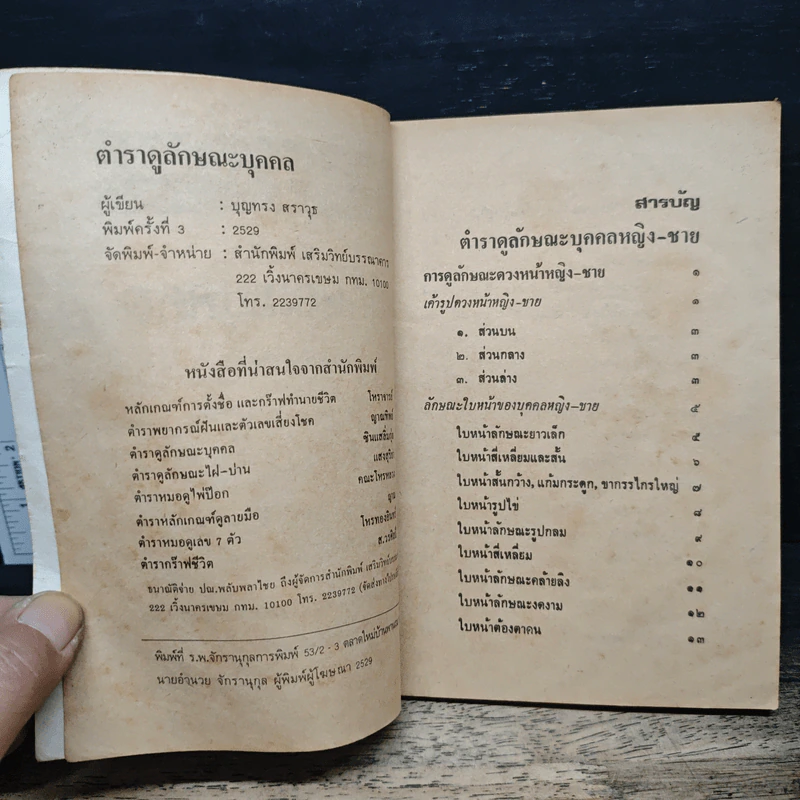 ตำราดูลักษณะบุคคล
ผู้เขียน : บุญทรง สราวุธ
พิมพ์ครั้งที่ 3 : 2529
จัดพิมพ์-จำหน่าย : สำนักพิมพ์ เสริมวิทย์บรรณาคาร
222 เวิ้งนาครเขษม กทม. 10100
โทร. 2239772
หนังสือที่น่าสนใจจากสำนักพิมพ์
หลักเกณฑ์การตั้งชื่อ และกร๊าฟทำนายชีวิต
ตำราพยากรณ์ฝันและตัวเลขเสี่ยงโชค
ตำราดูลักษณะบุคคล
ตำราดูลักษณะไฝ-ปาน
ตำราหมอดูไพ่ป๊อก
ตำราหลักเกณฑ์ดูลายมือ
ตำราหมอดูเลข 7 ตัว
ตำรากร๊าฟชีวิต
ธนาณัติจ่าย ปณ.พลับพลาไชย ถึงผู้จัดการสำนักพิมพ์
222 เวิ้งนาครเขษม กทม. 10100 โทร. 2239772
พิมพ์ที่ ร.พ.จักรานุกูลการพิมพ์ 53/2 - 3
นายอำนวย จักรานุกูล ผู้พิมพ์ผู้โฆษณา 2529
สารบัญ
ตำราดูลักษณะบุคคลหญิง-ชาย
การดูลักษณะดวงหน้าหญิง-ชาย ๑
เค้ารูปดวงหน้าหญิง-ชาย ๑
๑. ส่วนบน ๓
๒. ส่วนกลาง ๓
๓. ส่วนล่าง ๓
ลักษณะใบหน้าของบุคคลหญิง-ชาย ๕
ใบหน้าลักษณะยาวเล็ก ๕
ใบหน้าสี่เหลี่ยมและสั้น ๖
ใบหน้าสั้นกว้าง, แก้มกระดูก, ขากรรไกรใหญ่ ๗
ใบหน้ารูปไข่ ๘
ใบหน้าลักษณะรูปกลม ๙
ใบหน้าสี่เหลี่ยม ๑๐
ใบหน้าลักษณะคล้ายลิง ๑๑
ใบหน้าลักษณะงดงาม ๑๒
ใบหน้าต้องตาคน ๑๓